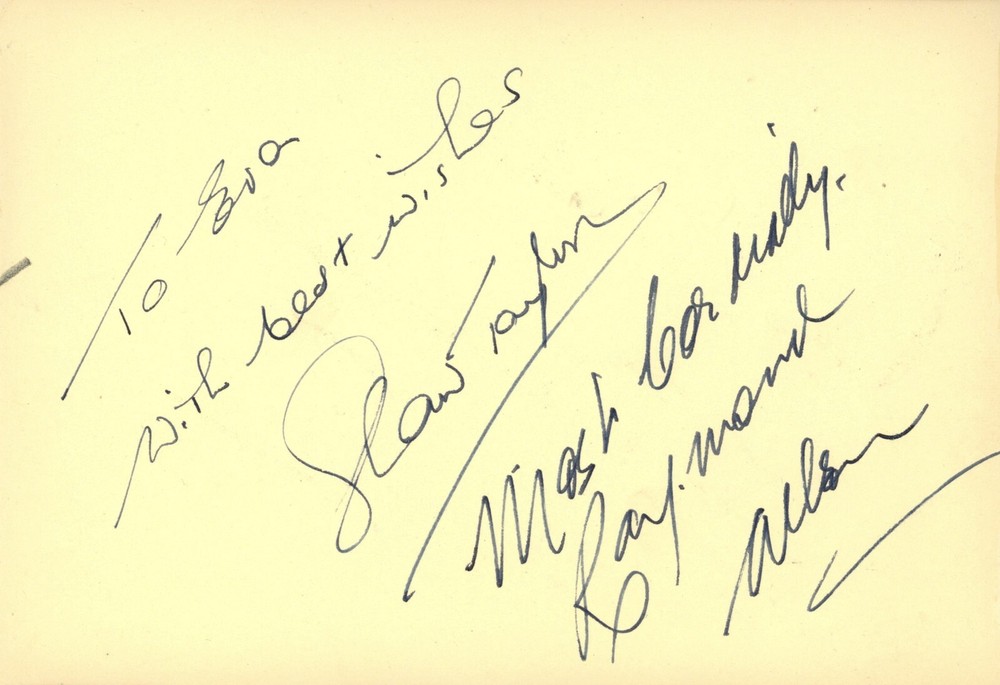 To Eva
With best wishes
Shaw Taylor
Most Cordially.
Raymond
Allen